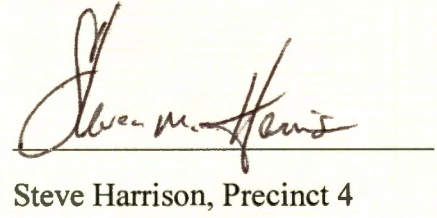 Steven M. Harris
Steve Harrison, Precinct 4